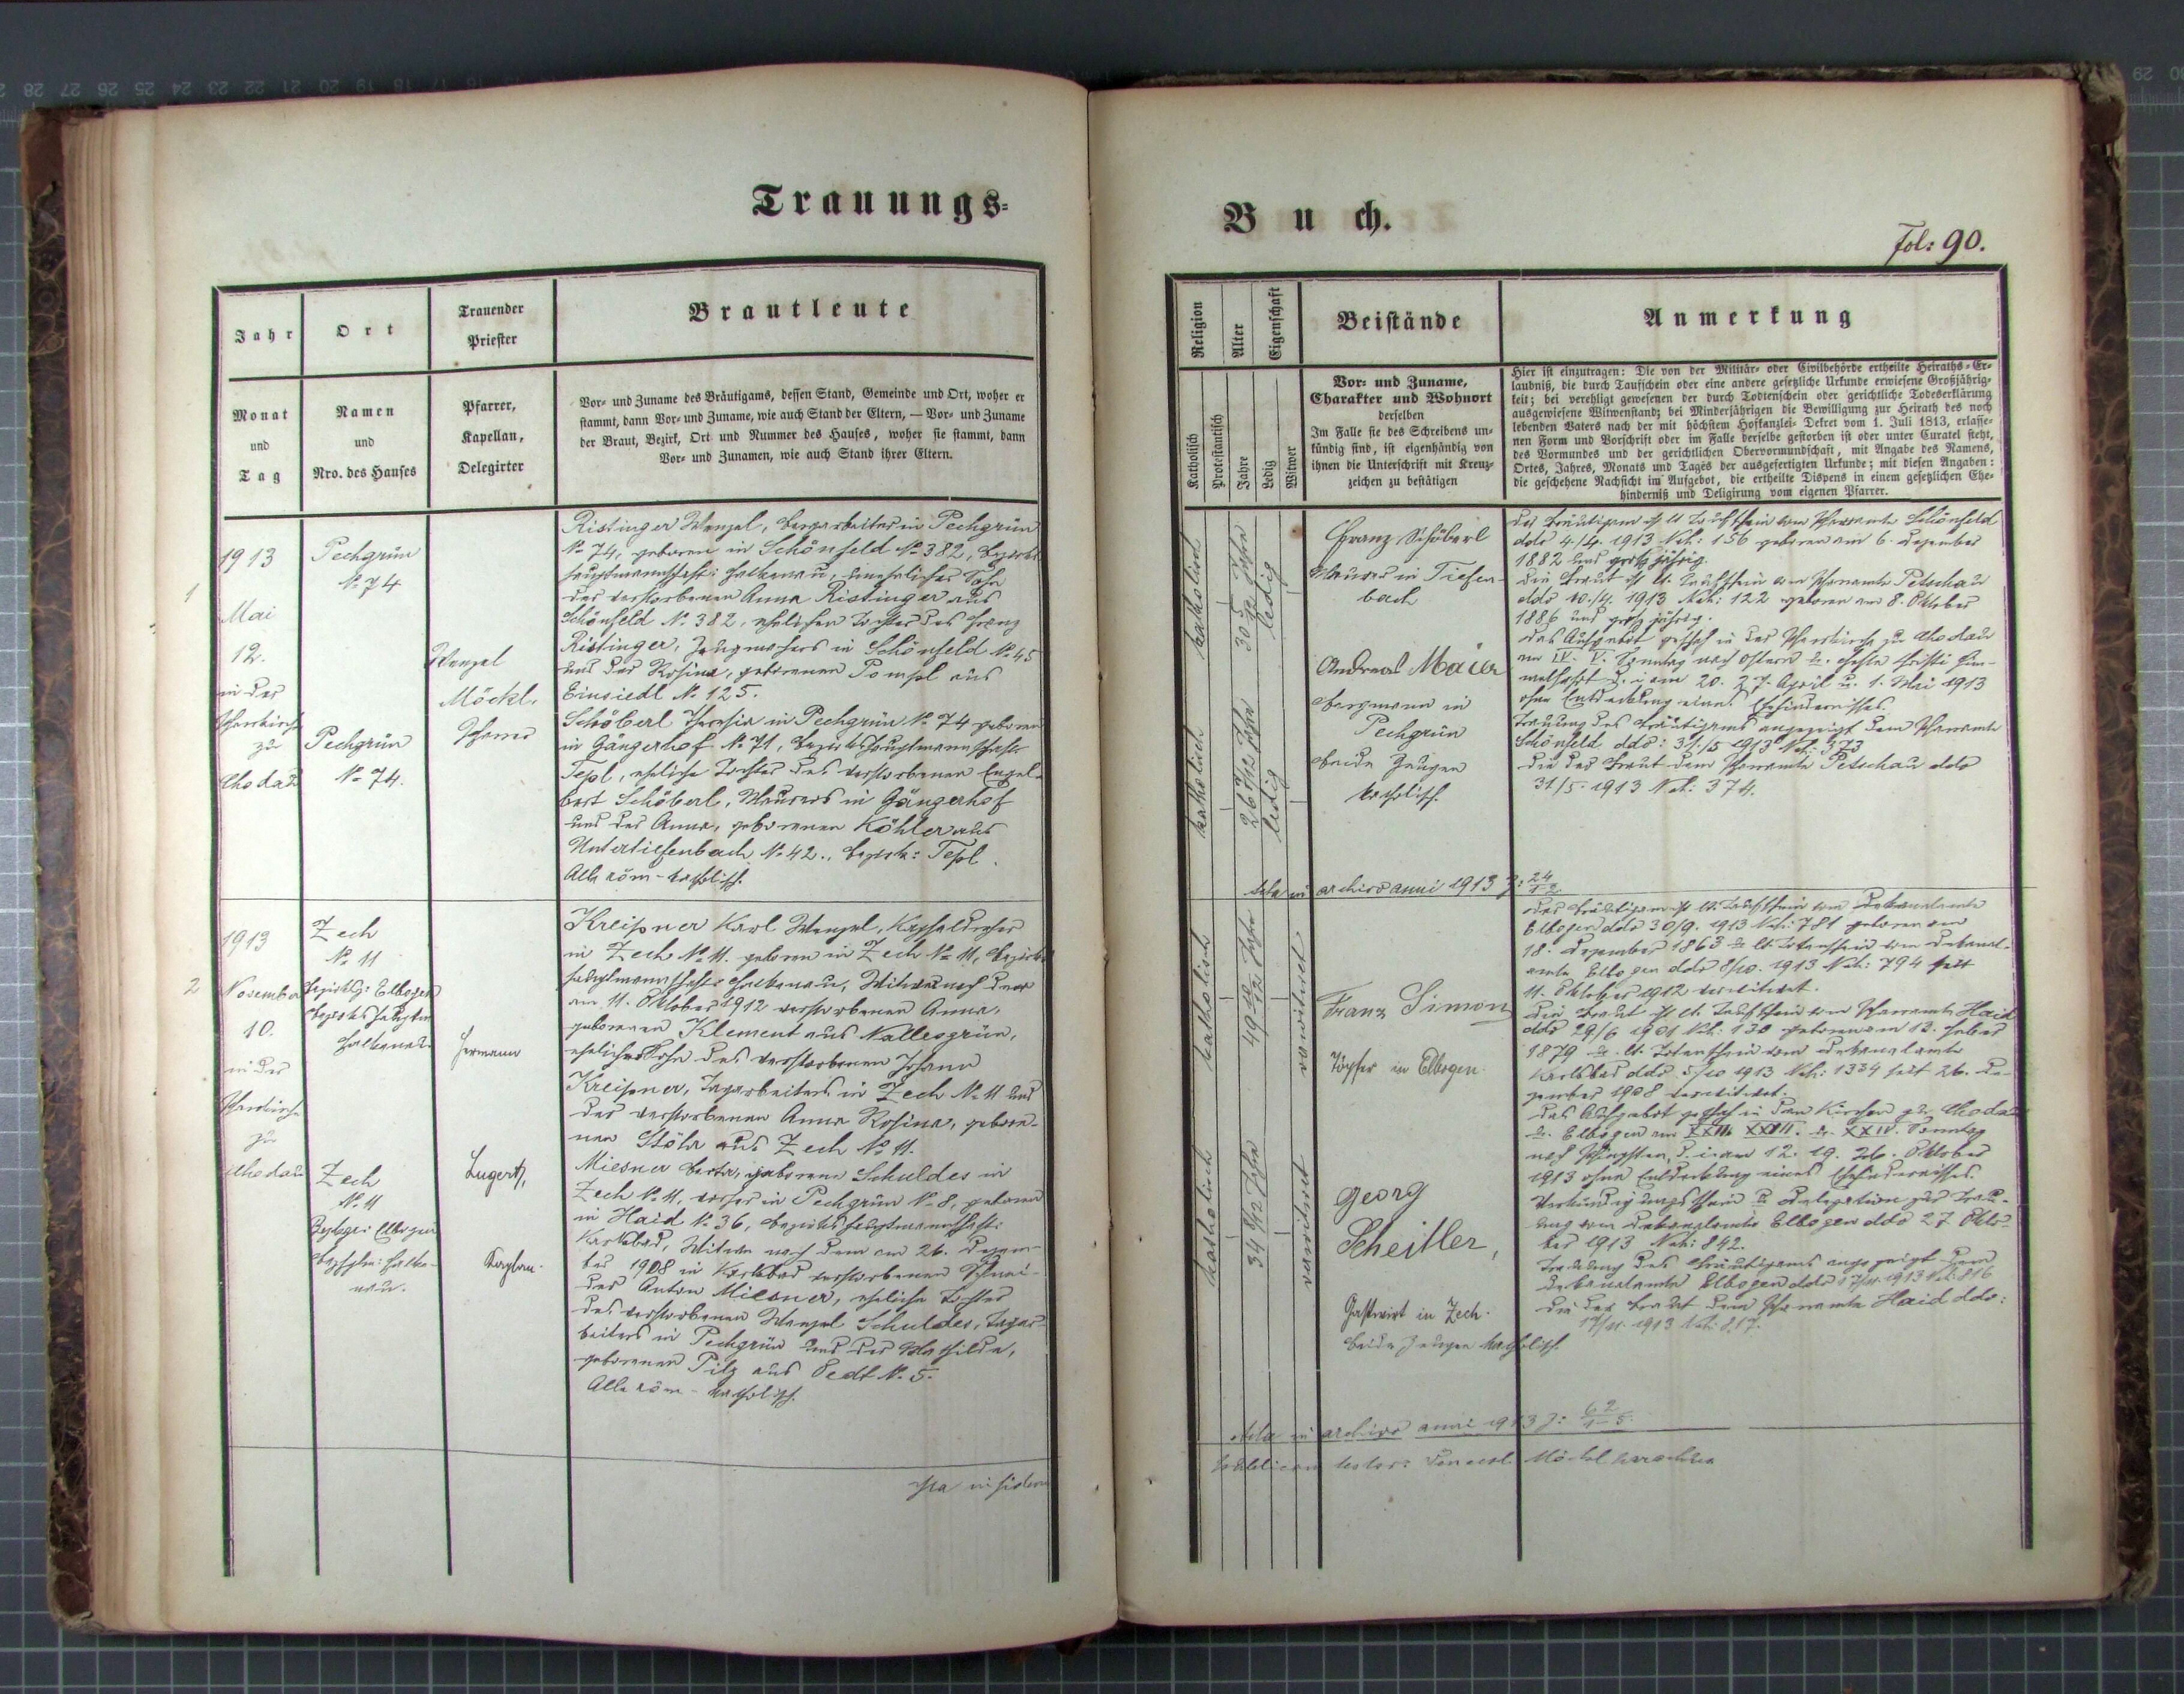 Trauungs-
Buch.
Fol: 90.
Jahr
Monat
und
Tag
Ort
Namen
und
Nro. des Hauses
Trauender
Priester
Pfarrer,
Kapellan,
Delegirter
Brautleute
Vor- und Zuname des Bräutigams, dessen Stand, Gemeinde und Ort, woher er
stammt, dann Vor- und Zuname, wie auch Stand der Eltern, — Vor- und Zuname
der Braut, Bezirk, Ort und Nummer des Hauses, woher sie stammt, dann
Vor- und Zunamen, wie auch Stand ihrer Eltern.
Religion
Katholisch
Protestantisch
Alter
Jahre
Eigenschaft
Ledig
Witwer
Beistände
Vor- und Zuname,
Charakter und Wohnort
derselben
Im Falle sie des Schreibens un-
kündig sind, ist eigenhändig von
ihnen die Unterschrift mit Kreuz-
zeichen zu bestätigen
Anmerkung
Hier ist einzutragen: Die von der Militär- oder Civilbehörde ertheilte Heiraths-Er-
laubniß, die durch Taufschein oder eine andere gesetzliche Urkunde erwiesene Großjährig-
keit; bei verehligt gewesenen der durch Todtenschein oder gerichtliche Todeserklärung
ausgewiesene Witwenstand; bei Minderjährigen die Bewilligung zur Heirath des noch
lebenden Vaters nach der mit höchstem Hofkanzlei- Dekret vom 1. Juli 1813, erlasse-
nen Form und Vorschrift oder im Falle derselbe gestorben ist oder unter Curatel steht,
des Vormundes und der gerichtlichen Obervormundschaft, mit Angabe des Namens,
Ortes, Jahres, Monats und Tages der ausgefertigten Urkunde; mit diesen Angaben:
die geschehene Nachsicht im Aufgebot, die ertheilte Dispens in einem gesetzlichen Ehe-
hinderniß und Deligirung vom eigenen Pfarrer.
1
1913
Mai
12.
in der
Pfarrkirche
zu
Chodau
Pechgrün
No 74
Pechgrün
No 74.
Wenzel
Möckl,
Pfarrer
Ristinger Wenzel, Bergarbeiter in Pechgrün
No 74, geboren in Schönfeld No 382, Bezirks-
hauptmannschaft: Falkenau, unehelicher Sohn
der verstorbenen Anna Ristinger aus
Schönfeld No 382, ehelichen Tochter des Franz
Ristinger, Zeugmachers in Schönfeld No 45
und der Rosina, geborenen Pompl aus
Einsiedl No 125.
Schöberl Theresia in Pechgrün No 74 geboren
in Gängerhof No 71, Bezirkshauptmannschaft
Tepl, eheliche Tochter des verstorbenen Engel-
bert Schöberl, Maurers in Gängerhof
und der Anna, geborenen Köhler aus
Untertiefenbach No 42., Bezirk: Tepl.
Alle röm-katholisch.
katholisch
katholisch
30 5/12 Jahre
26 7/12 Jahre
ledig
ledig
Franz Schöberl
Maurer in Tiefen-
bach
Andreas Maier
Bergmann in
Pechgrün
Beide Zeugen
katholisch.
Der Bräutigam ist lt. Taufschein vom Pfarramte Schönfeld
ddo 4./4. 1913 Neh: 156 geboren am 6. Dezember
1882 und großjährig.
Die Braut ist lt. Taufschein vom Pfarramte Petschau
ddo 10./4. 1913 Neh: 122 geboren am 8. Oktober
1886 und großjährig.
Das Aufgebot geschah in der Pfarrkirche zu Chodau
am IV. V. Sonntag nach Ostern u. Feste Christi Him-
melfahrt d. i. am 20. 27. April u. 1. Mai 1913
ohne Entdeckung eines Ehehindernisses.
Trauung des Bräutigams angezeigt dem Pfarramte
Schönfeld ddo: 31./5 1913 Neh: 373
die der Braut dem Pfarramte Petschau ddo
31./5. 1913 Neh: 374.
Acta in archivo anni 1913 J: 24/12
2
1913
November
10.
in der
Pfarrkirche
zu
Chodau
Zech
No 11
Bezirksg: Elbogen
Bezirkshauptm
Falkenau.
Zech
No 11
Bezksger: Elbogen
Bezhptm: Falke-
nau.
Hermann
Lugert,
Kaplan.
Kreißner Karl Wenzel,
in Zech No 11. geboren in Zech No 11, Bezirks-
hauptmannschaft Falkenau, Witwer nach der
am 11. Oktober 1912 verstorbenen Anna,
geborenen Klement aus Nallesgrün,
ehelicher Sohn des verstorbenen Johann
Kreißner, Tagarbeiters in Zech No 11 und
der verstorbenen Anna Rosina, gebore-
nen Stöhr aus Zech No 11.
Miesner Berta, geborene Schuldes in
Zech No 11, vorher in Pechgrün No 8, geboren
in Haid No 36, Bezirkshauptmannschaft:
Karlsbad, Witwe nach dem am 26. Dezem-
ber 1908 in Karlsbad verstorbenen Schnei-
der Anton Miesner, eheliche Tochter
des verstorbenen Wenzel Schuldes, Tagar-
beiters in Pechgrün und der Mathilde,
geborenen Pilz aus Oedt No 5.
Alle röm-katholisch.
katholisch
katholisch
49 10/12 Jahre
34 8/12 Jahre
verwitwet
verwitwet
Franz Simon
Töpfer in Elbogen.
Georg
Scheitler,
Gastwirt in Zech.
Beide Zeugen katholisch.
Der Bräutigam ist lt. Taufschein vom Dekanalamte
Elbogen ddo 30/9. 1913 Neh: 781 geboren am
18. Dezember 1863 u. lt. Totenschein vom Dekanal-
amte Elbogen ddo 8/10. 1913 Neh: 794 seit
11. Oktober 1912 verwitwet.
Die Braut ist lt. Taufschein vom Pfarramte Haid
ddo 29./6 1901 Neh: 130 geboren am 13. Feber
1879 u. lt. Totenschein vom Dekanalamte
Karlsbad ddo 5/10 1913 Neh: 1334 seit 26. De-
zember 1908 verwitwet.
Das Aufgebot geschah in den Kirchen zu Chodau
u. Elbogen am XXII. XXIII. u. XXIV. Sonntag
nach Pfingsten, d. i. am 12. 19. 26. Oktober
1913 ohne Entdeckung eines Ehehindernisses.
Verkündigungsschein u. Delegation zur Trau-
ung vom Dekanalamte Elbogen ddo 27 Okto-
ber 1913 Neh: 842.
Trauung des Bräutigams angezeigt dem
Dekanalamte Elbogen ddo 17/11. 1913 Neh: 816
die der Braut dem Pfarramte Haid ddo:
17/11. 1913 Neh: 817.
Acta in archivo anni 1913 J: 62/1-5.
Ita in fidem
Möckl